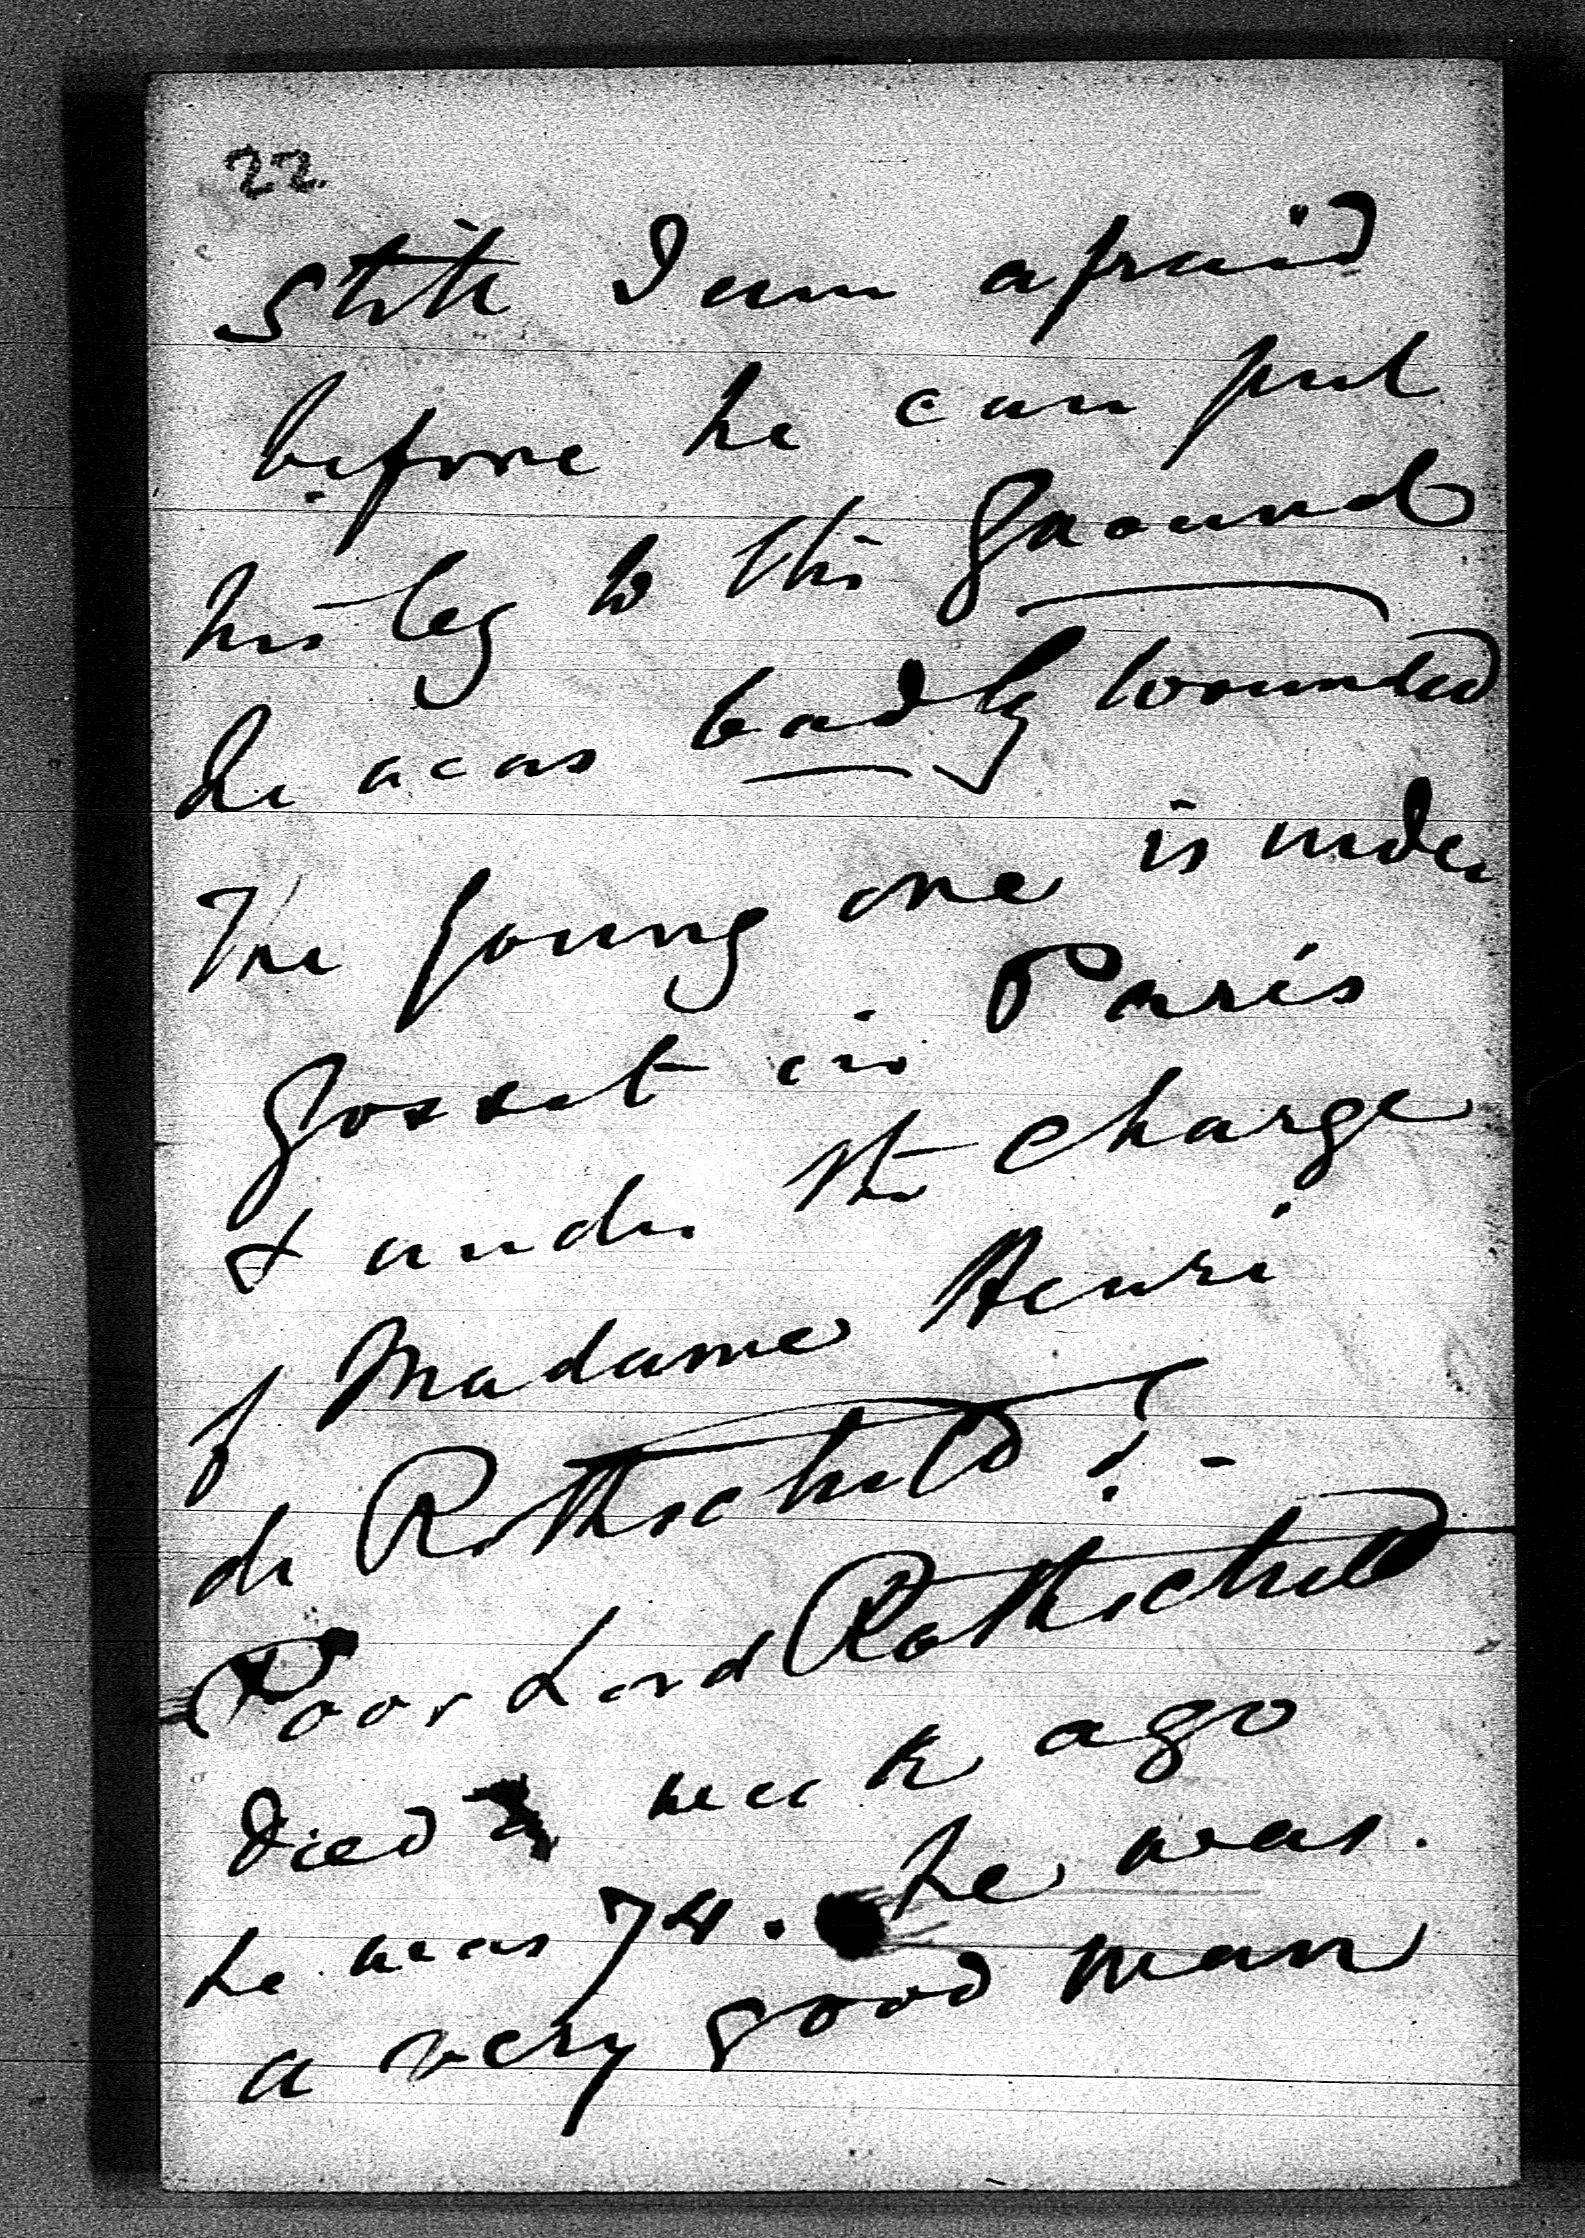 22
State I am afraid
before he can put
his leg to the ground
he was badly wounded
The young one is under
Gosset in Paris
& under the charge
of Madame Henri
de Rothschild! -
Poor Lord Rothschild
died a week ago
he was 74. he was
a very good man